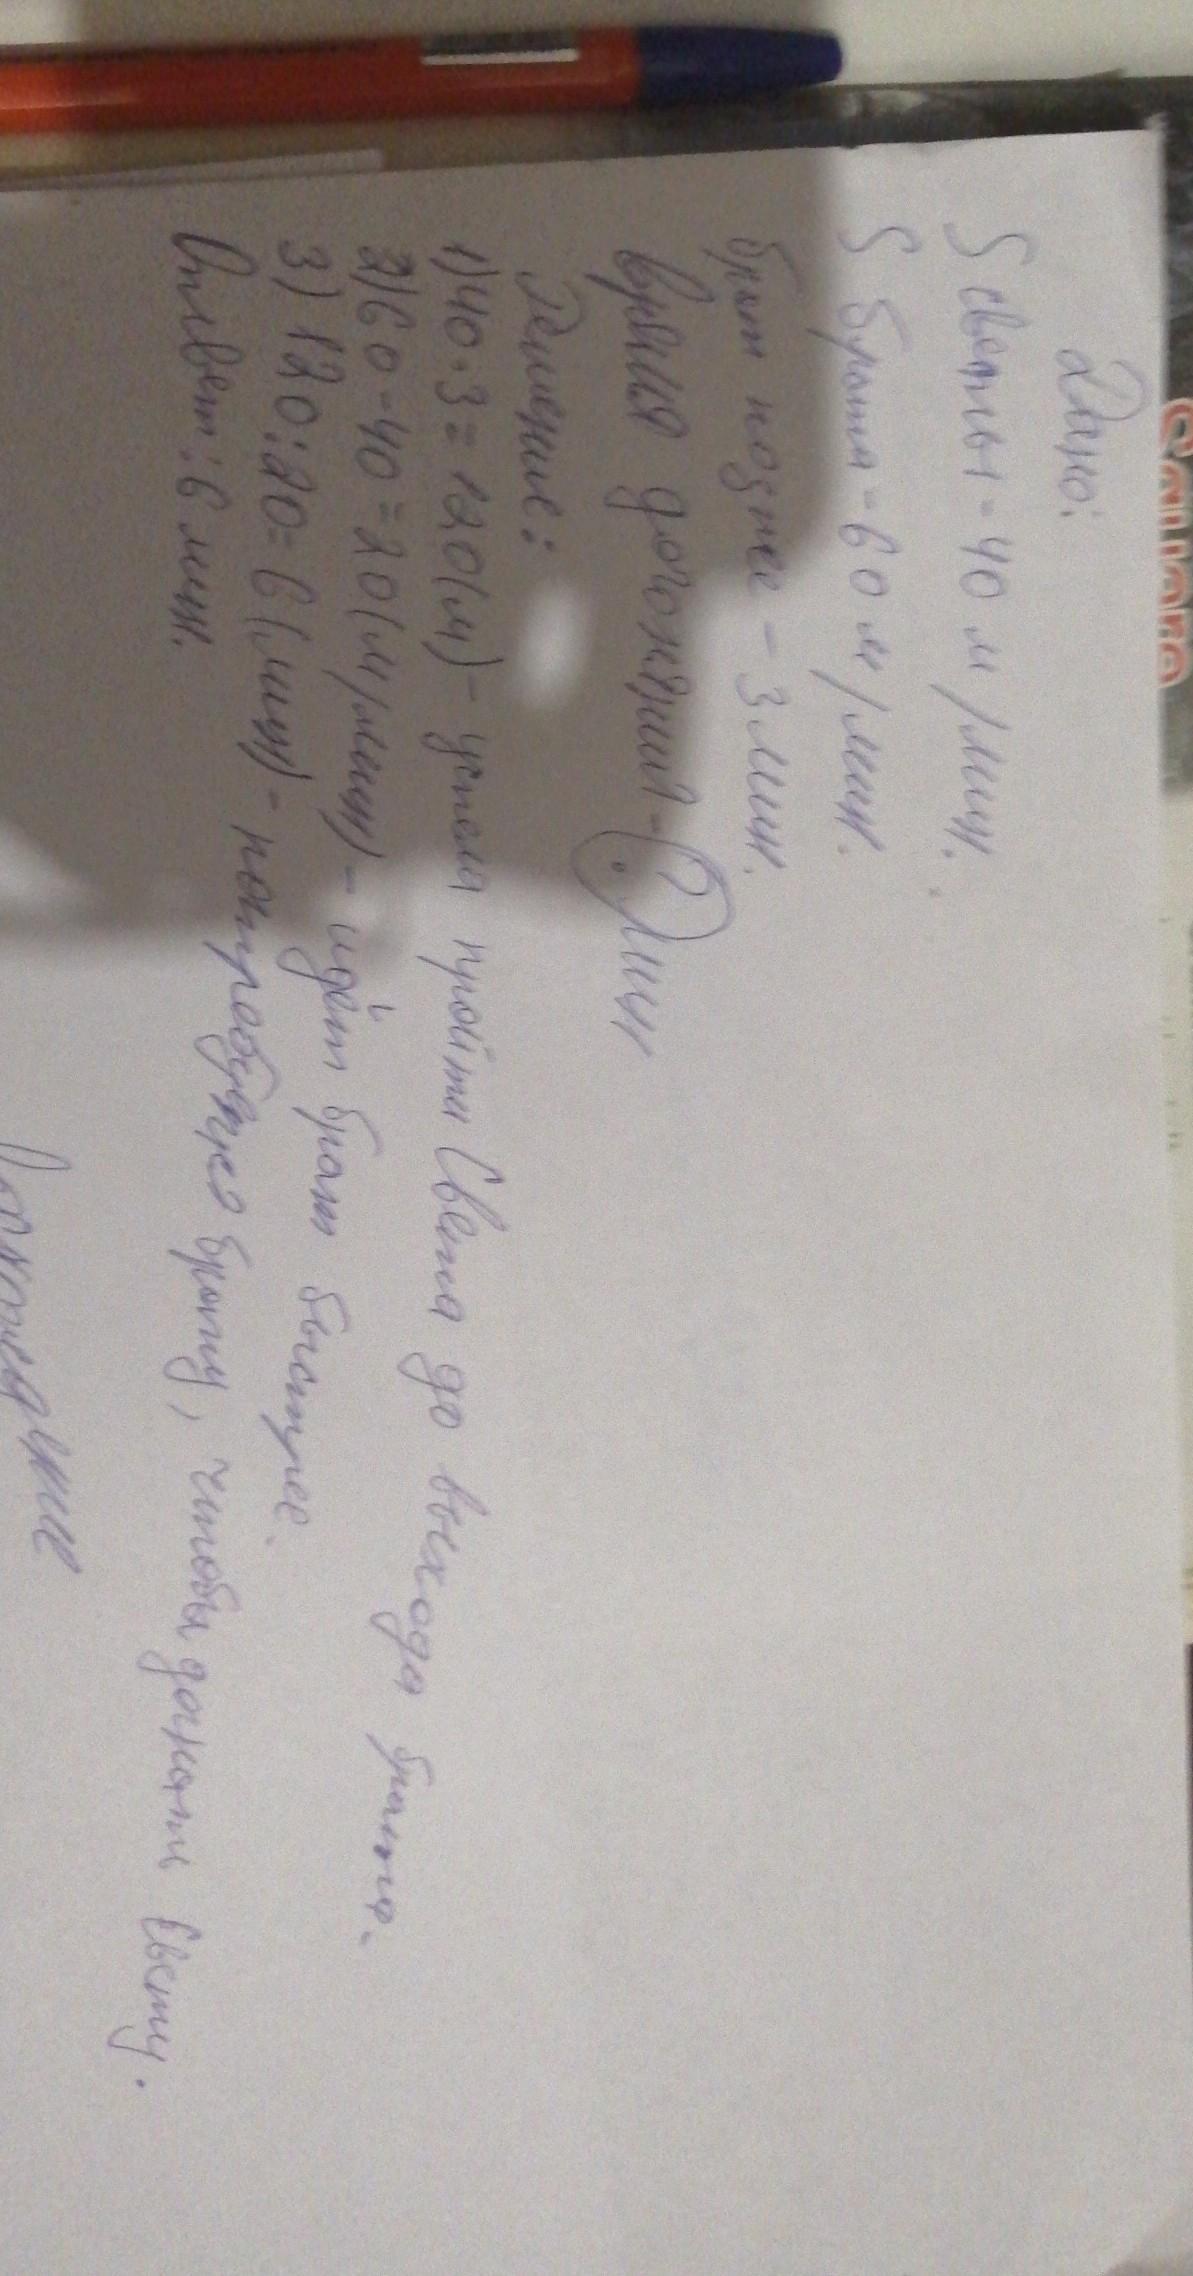 Дано:
S светы - 40 м/мин.
S брата - 60 м/мин.
брат позднее - 3 мин.
Время догонял - ? мин
Решение:
1) 40 · 3 = 120 (м) - успела пройти Света до выхода брата.
2) 60 - 40 = 20 (м/мин) - идёт брат быстрее.
3) 120 : 20 = 6 (мин) - потребуется брату, чтобы догнать Свету.
Ответ: 6 мин.